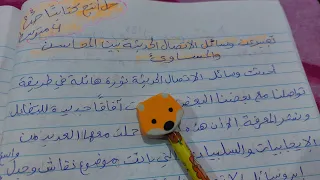 حل انتج كتابيا ص
4 متوسط
تجسيد وسائل الاتصال الحديثة بين المحاسن
والمساوئ
أحدثت وسائل الاتصال الحديثة ثورة هائلة في طريقة
تواصلنا مع بعضنا البعض آفاقا جديدة للتفاعل
و نشر المعرفة إلا أن هذه حملت معها العديد من
الإيجابيات والسلبيات التي باتت موضوع نقاش وجدل